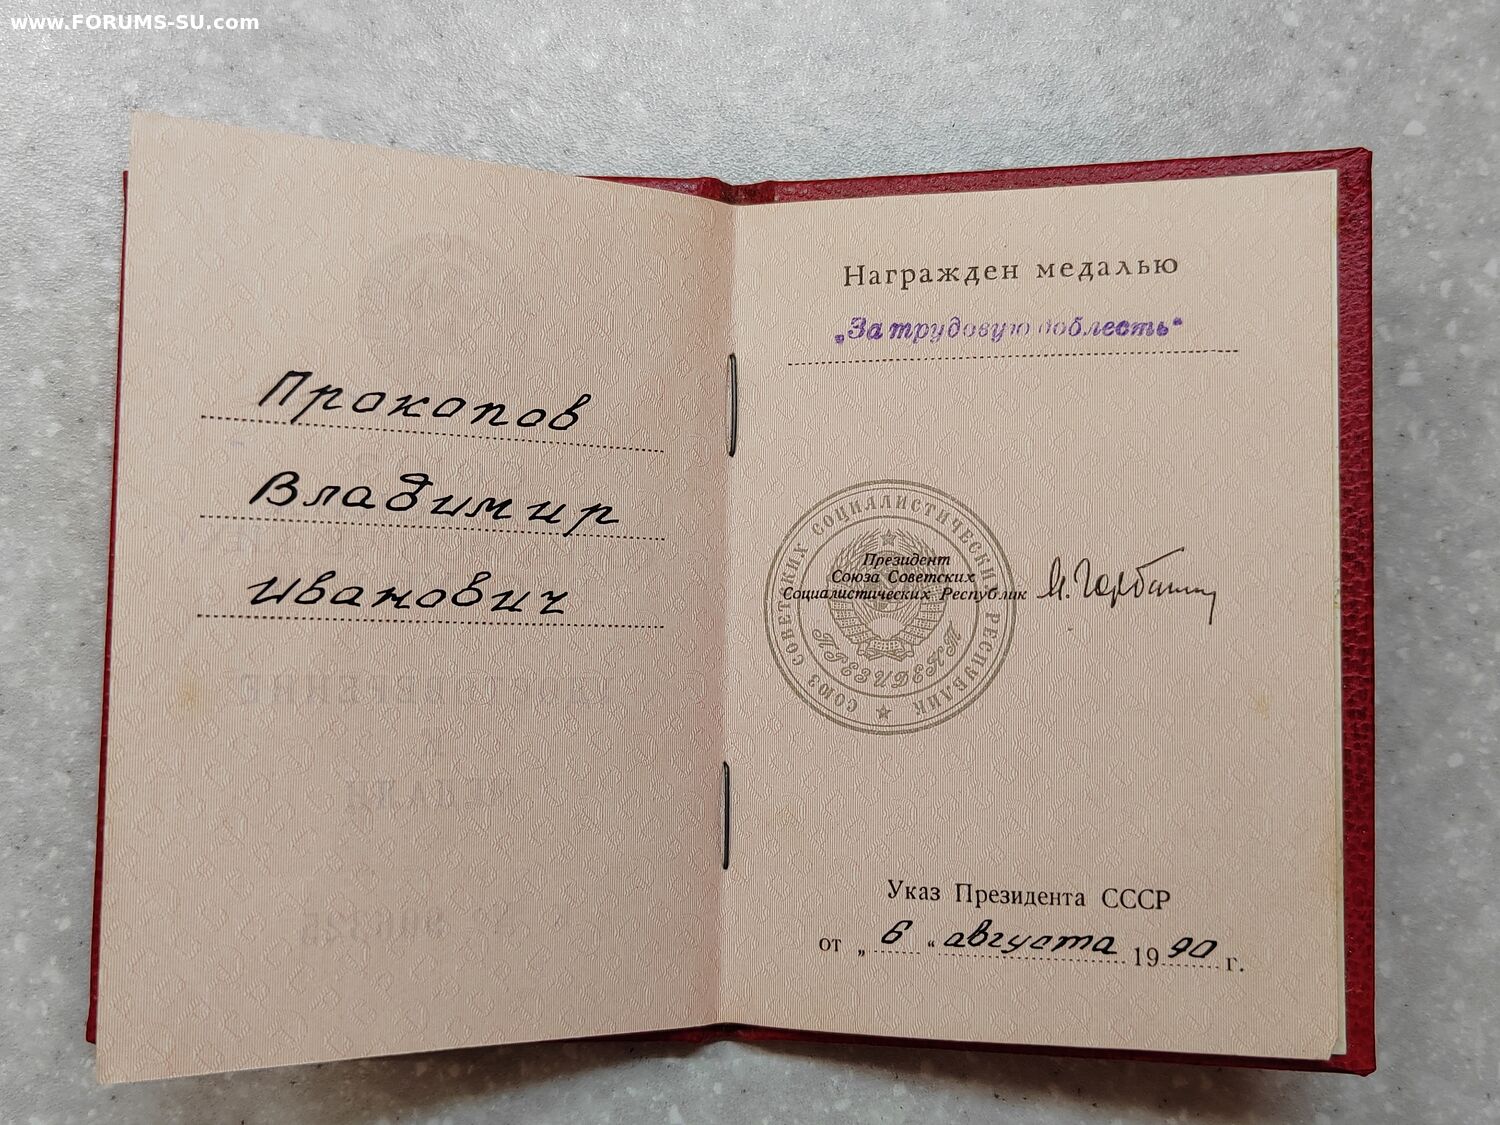 www.FORUMS-SU.com
Прокопов
Владимир
Иванович
Награжден медалью
„За трудовую доблесть“
СОЮЗ СОВЕТСКИХ СОЦИАЛИСТИЧЕСКИХ РЕСПУБЛИК
ПРЕЗИДЕНТ
Президент
Союза Советских
Социалистических Республик
М. Горбачев
Указ Президента СССР
от „ 6 “ августа 1990 г.